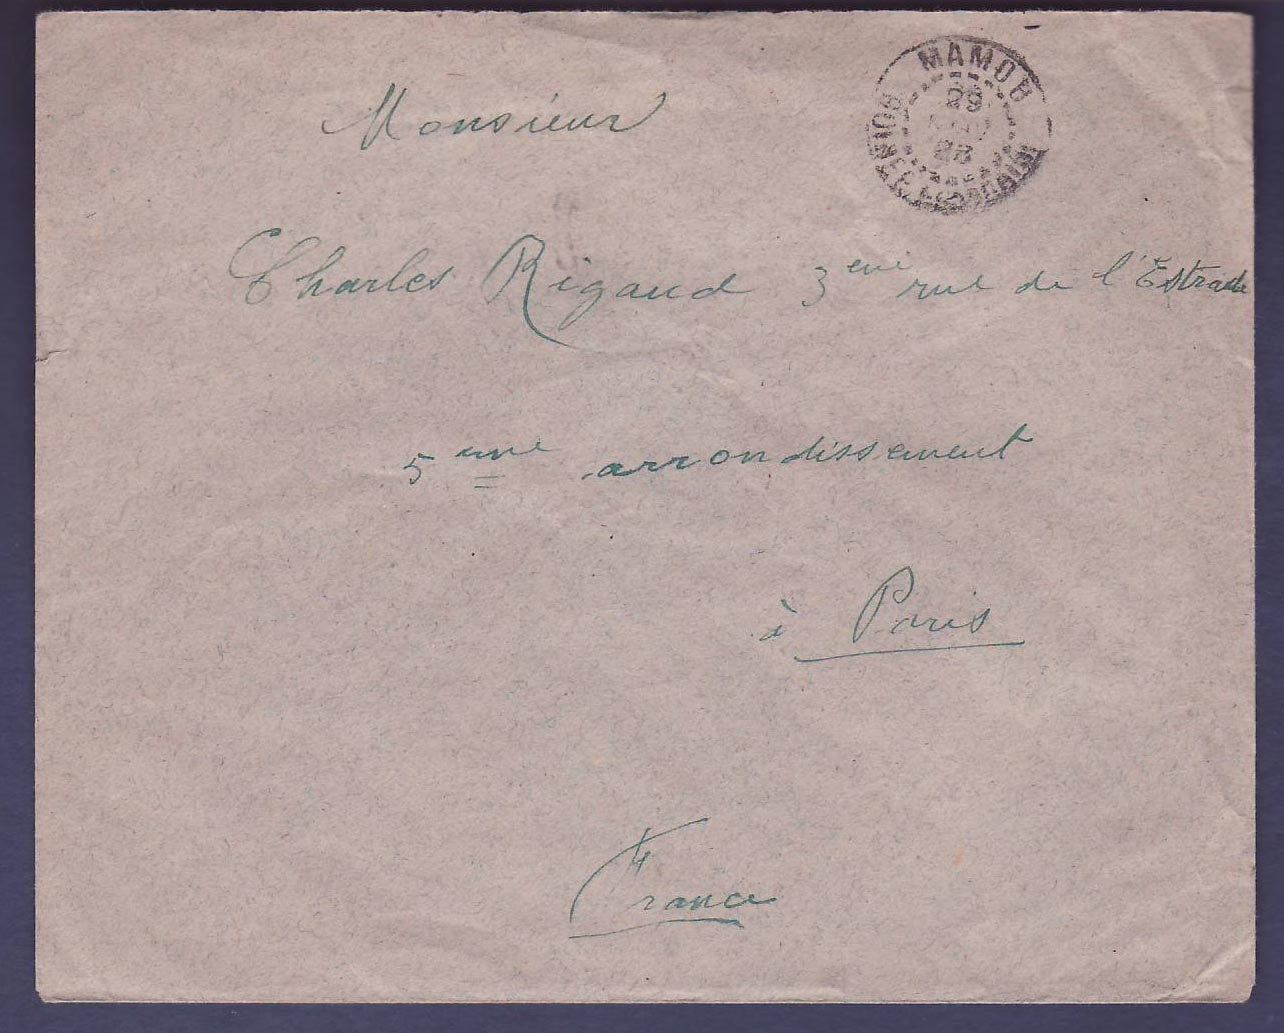 MAMOU
29
28
GUINEE FRANCAISE
Monsieur
Charles Rigaud 3eme rue de l'Estrade
5eme arrondissement
à Paris
France